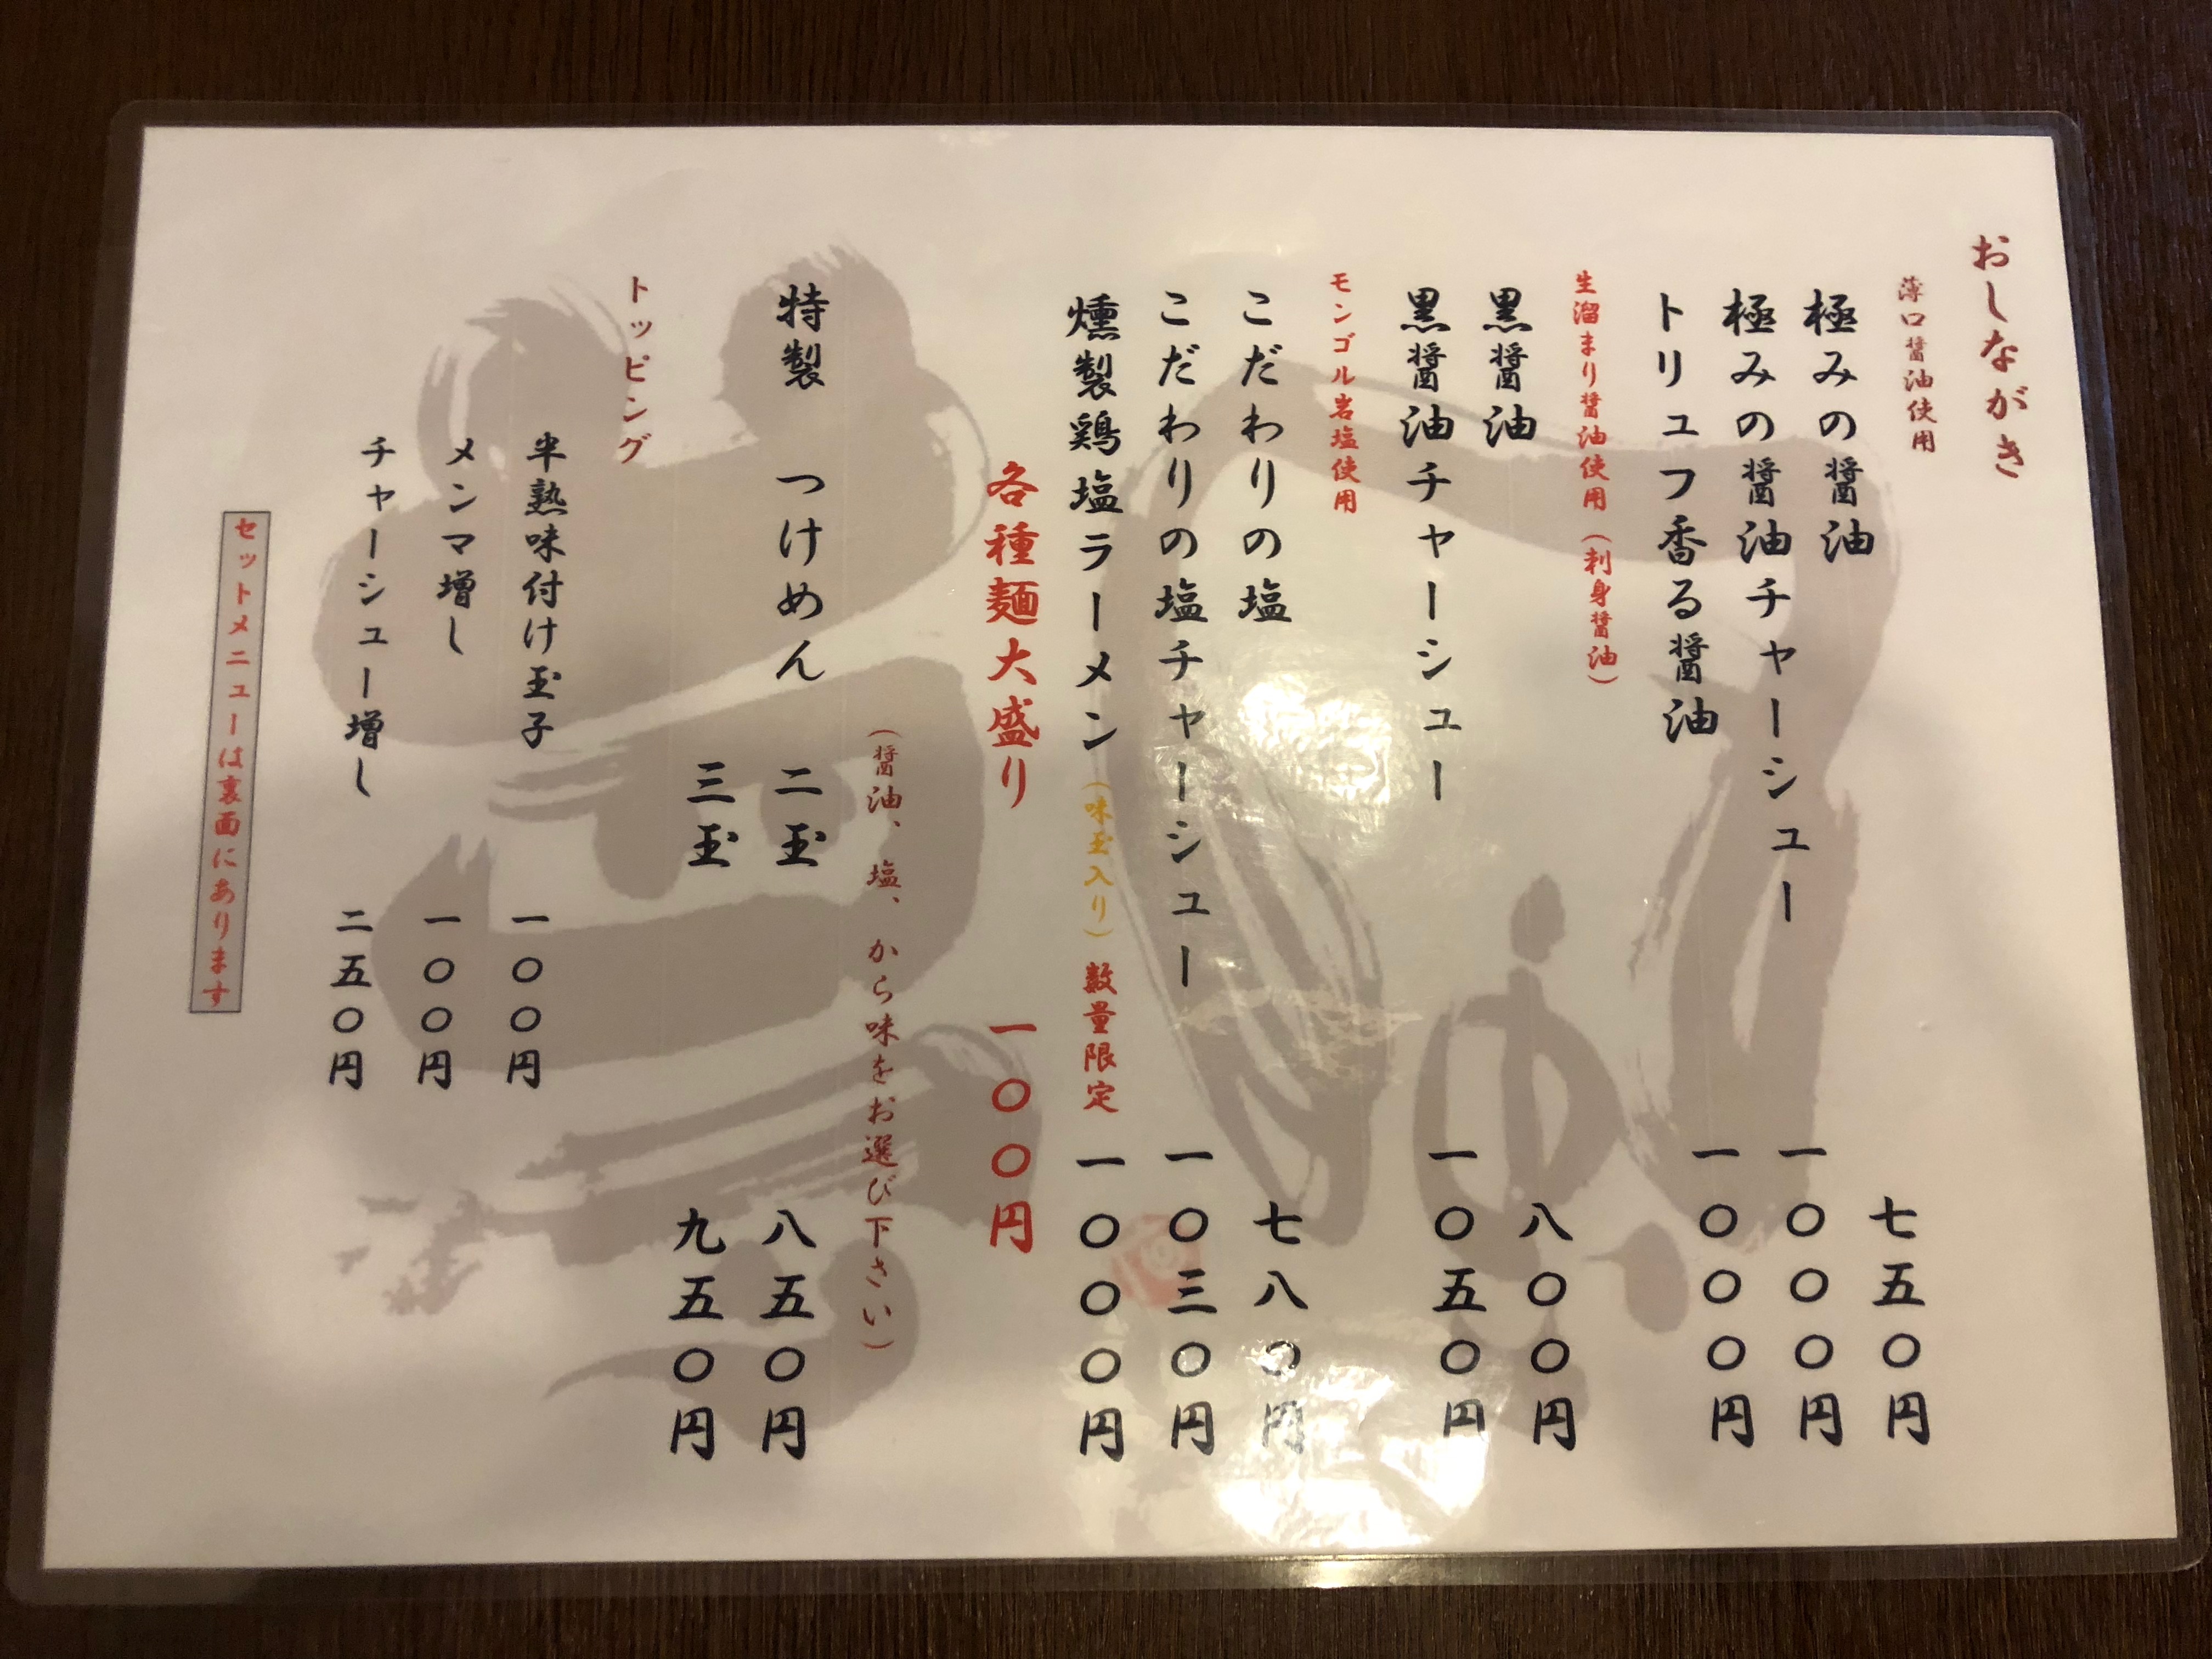 おしながき
薄口醤油使用
極みの醤油 七五〇円
極みの醤油チャーシュー 一〇〇〇円
トリュフ香る醤油 一〇〇〇円
生溜まり醤油使用(刺身醤油)
黒醤油 八〇〇円
黒醤油チャーシュー 一〇五〇円
モンゴル岩塩使用
こだわりの塩 七八〇円
こだわりの塩チャーシュー 一〇三〇円
燻製鶏塩ラーメン(味玉入り)数量限定 一〇〇〇円
各種麺大盛り 一〇〇円
(醤油、塩、から味をお選び下さい)
特製 つけめん 二玉 八五〇円
三玉 九五〇円
トッピング
半熟味付け玉子 一〇〇円
メンマ増し 一〇〇円
チャーシュー増し 二五〇円
セットメニューは裏面にあります